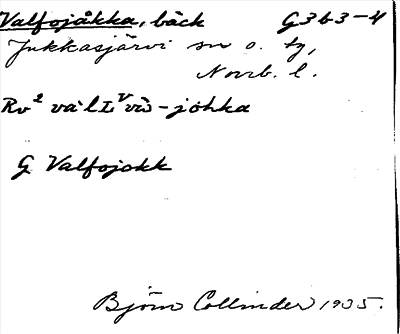 Valfojåkka, bäck G 3 b 3-4
Jukkasjärvi sn o. tg,
Norrb. l.
Rv² -johka
G Valfojokk
Björn Collinder 1935.